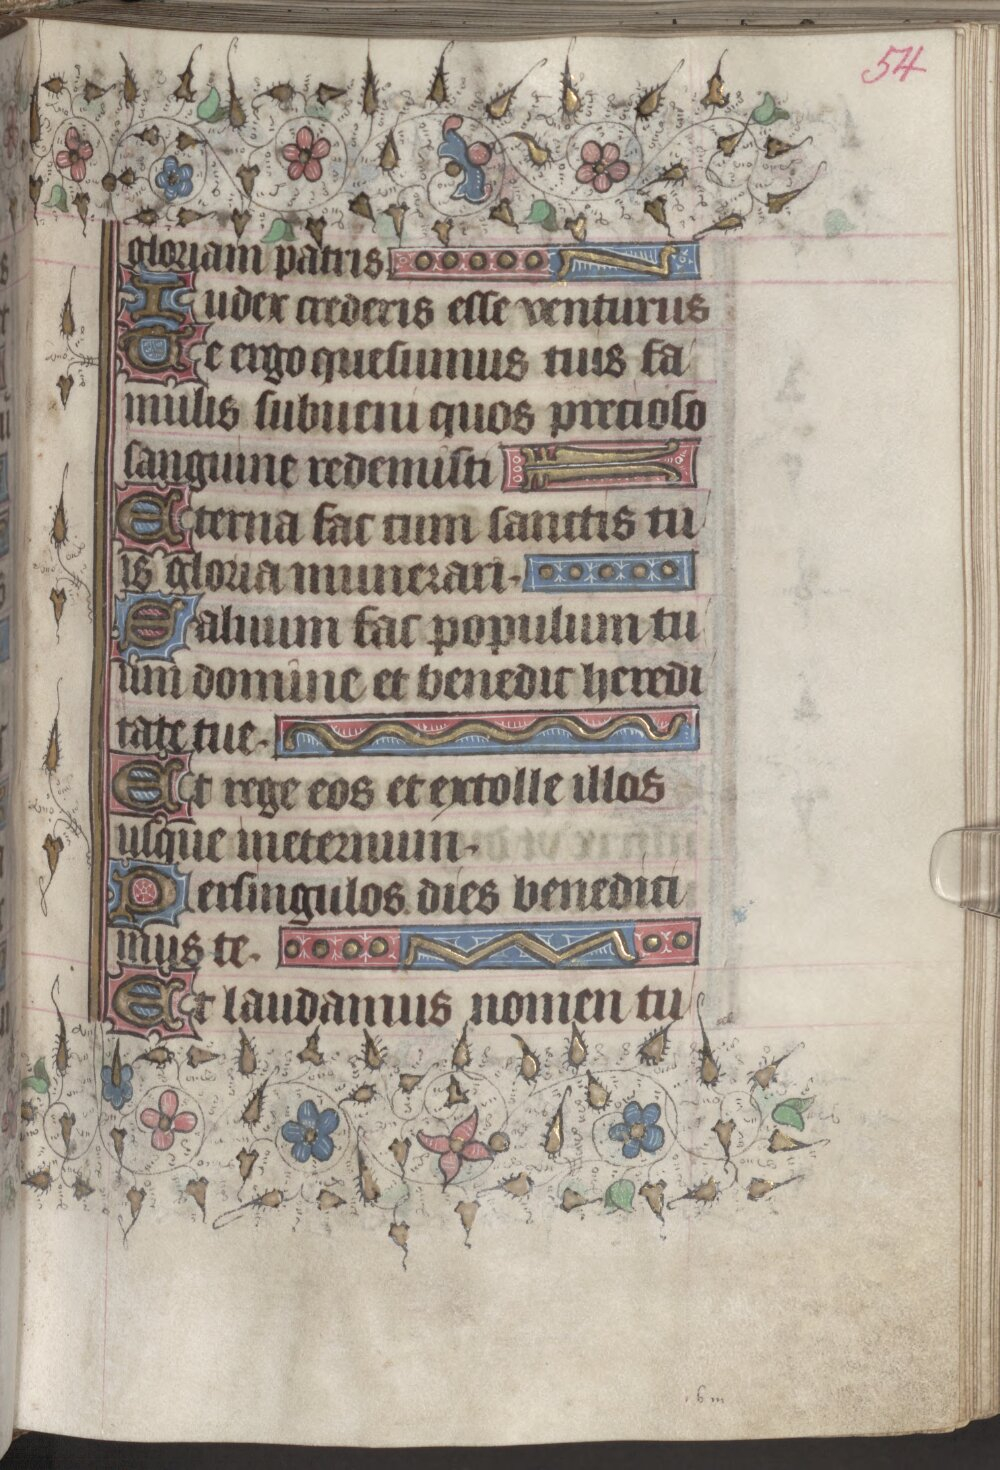 54
gloriam patris
Iudex crederis esse venturus
Te ergo quesumus tuis fa
mulis subueni quos precioso
sanguine redemisti
Eterna fac cum sanctis tu
is gloria munerari.
Saluum fac populum tu
um domine et benedic heredi
tate tue.
Et rege eos et extolle illos
usque ineternum.
Persingulos dies benedici
mus te.
Et laudamus nomen tu